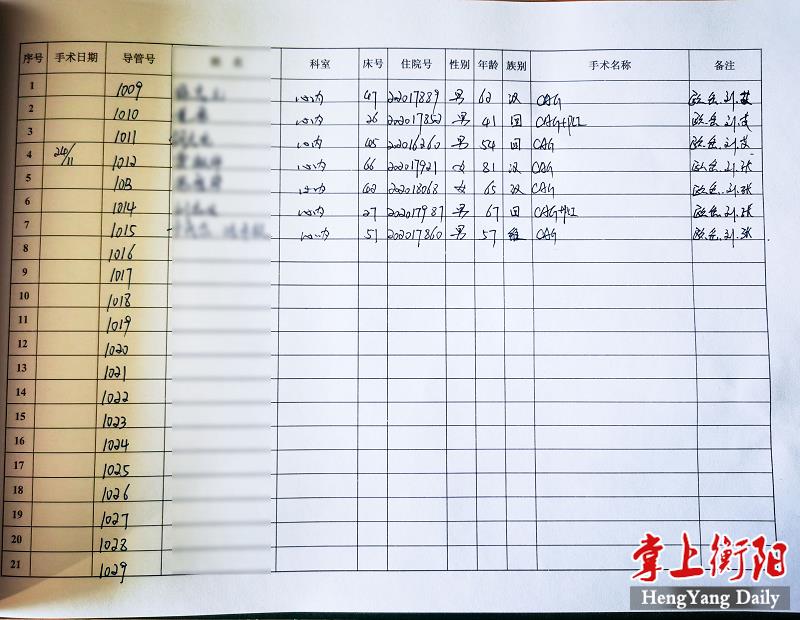 序号 手术日期 导管号 科室 床号 住院号 性别 年龄 族别 手术名称 备注
1 1009 心内 47 202017889 男 62 汉 CAG
2 1010 心内 26 男 41 回 CAG+PCI
3 1011 心内 202016260 男 54 回 CAG
4 24/11 1012 心内 66 202017921 女 81 汉 CAG
5 1013 心内 202018068 女 65 汉 CAG
6 1014 心内 27 202017987 男 67 回 CAG+PCI
7 1015 心内 51 202017860 男 57 维 CAG
8 1016
9 1017
10 1018
11 1019
12 1020
13 1021
14 1022
15 1023
16 1024
17 1025
18 1026
19 1027
20 1028
21 1029
掌上衡阳
HengYang Daily